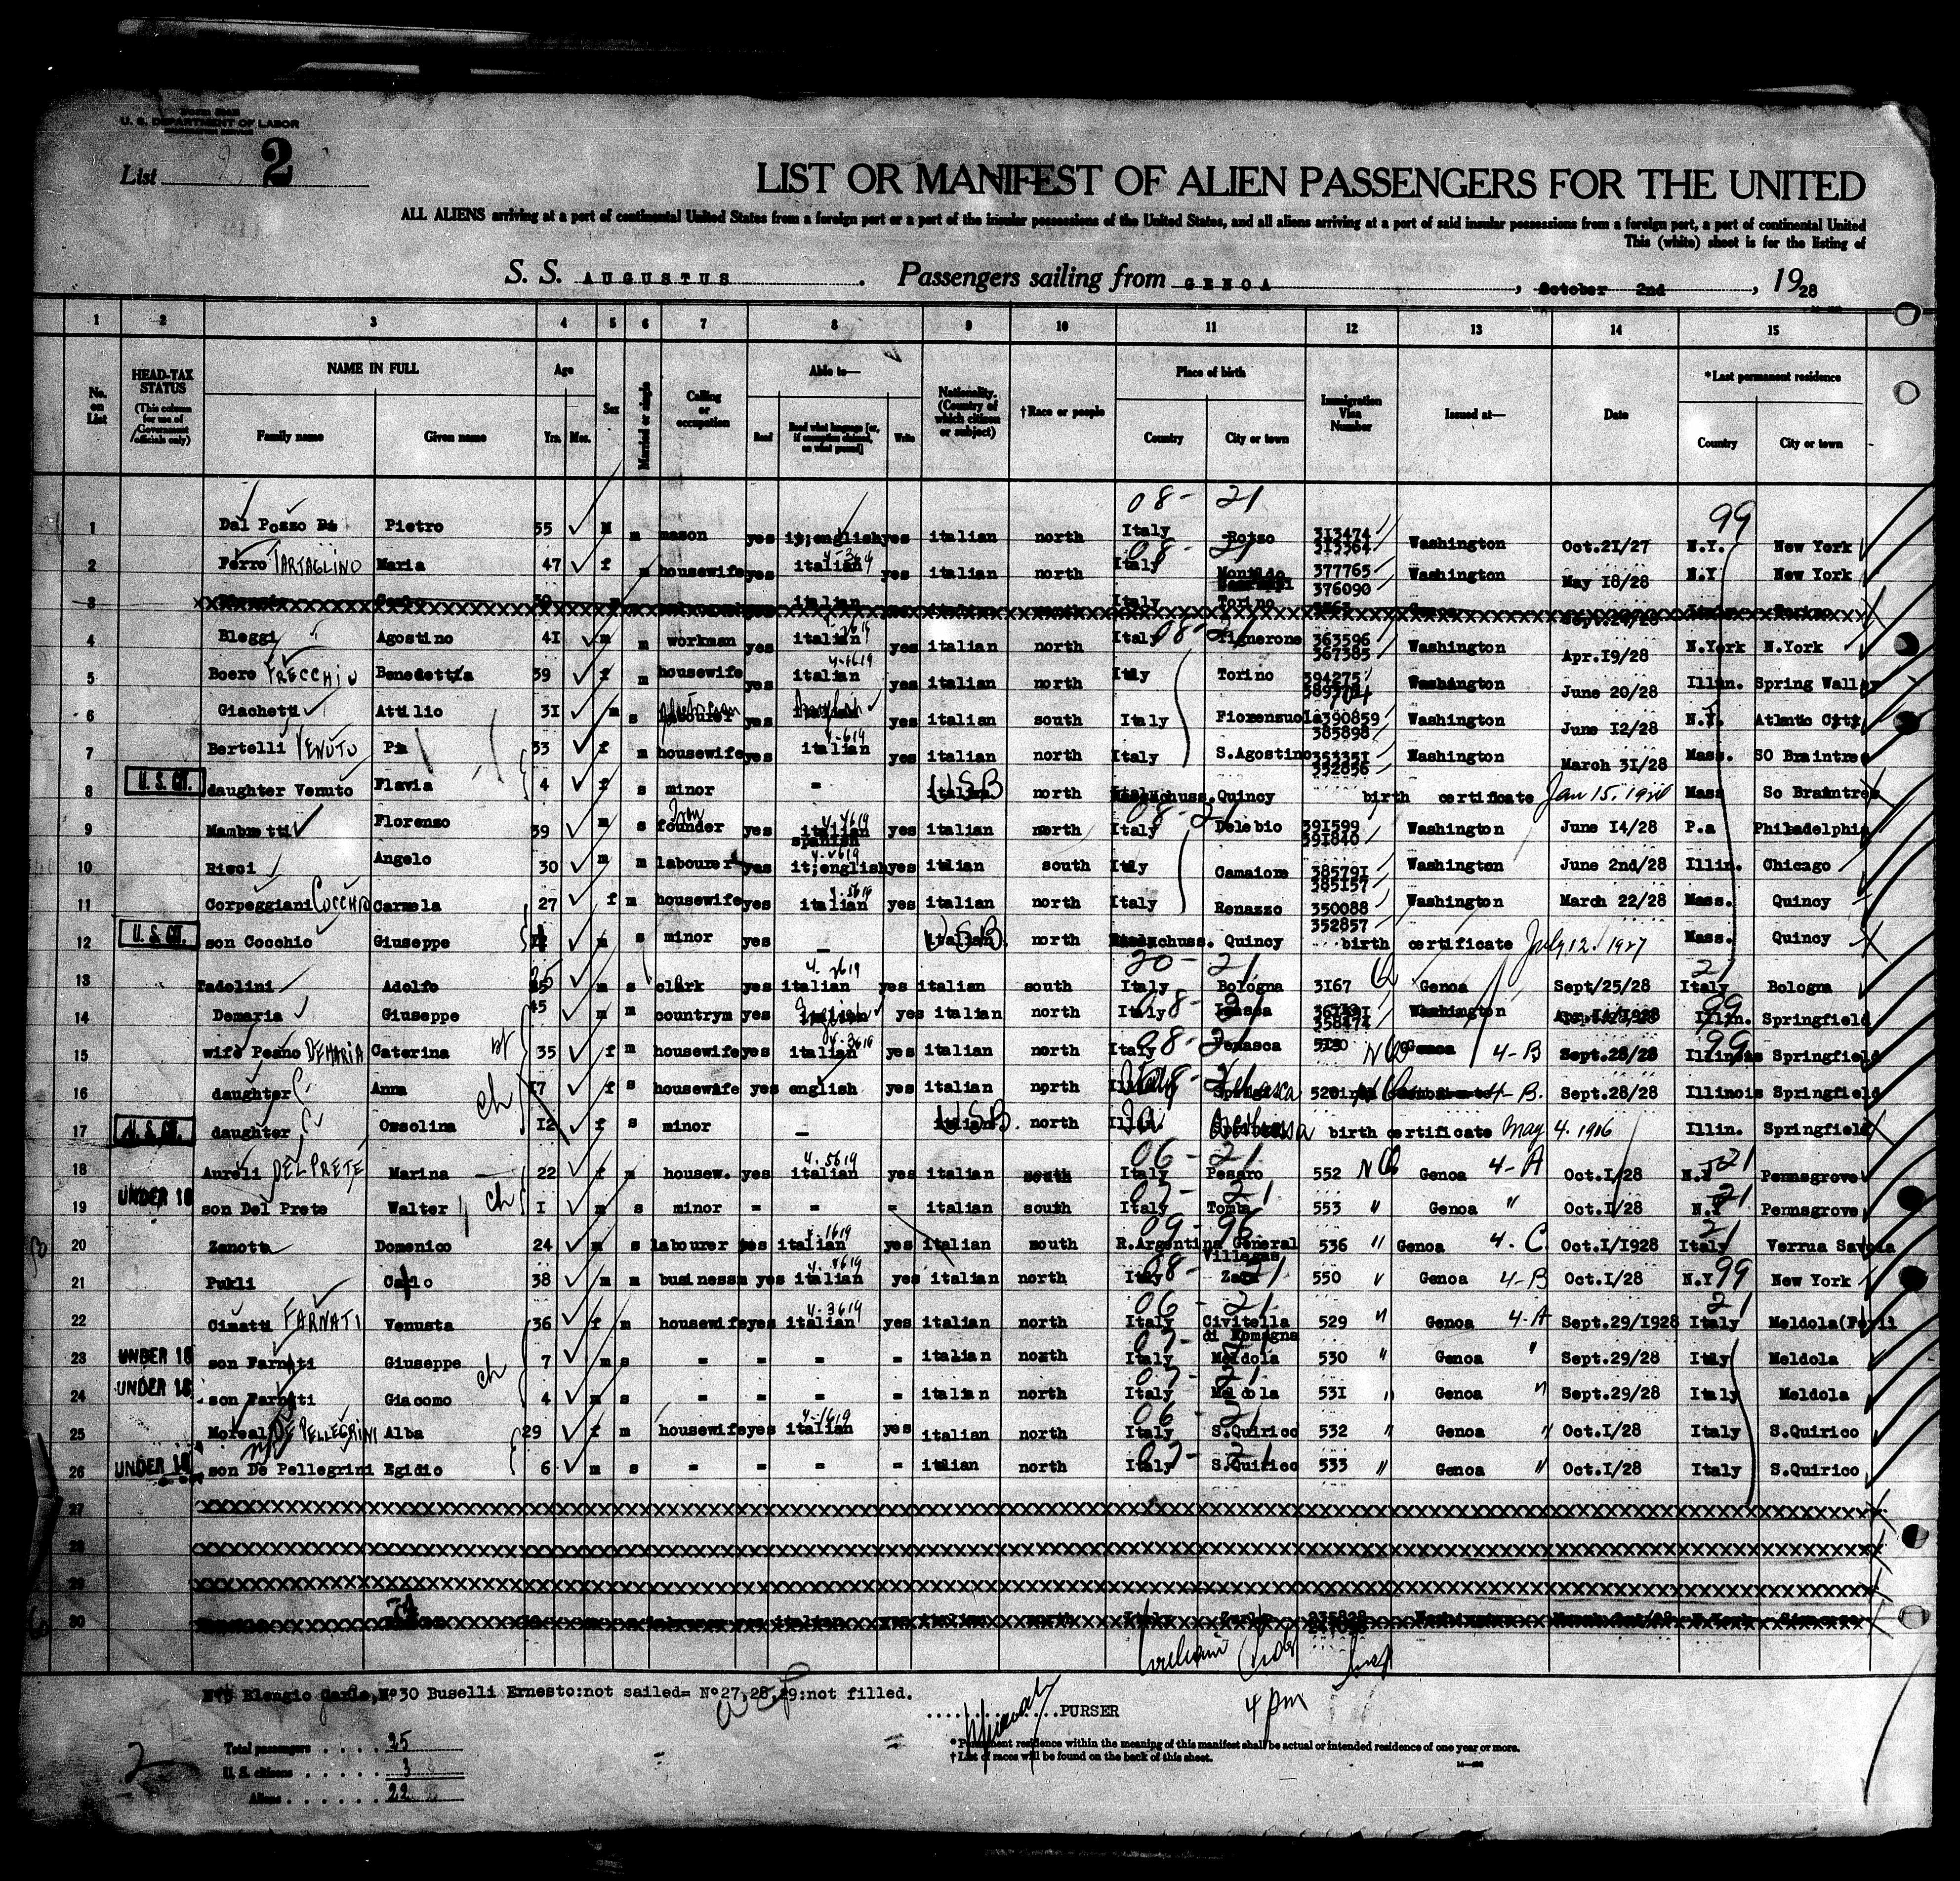 U. S. DEPARTMENT OF LABOR
List 2
LIST OR MANIFEST OF ALIEN PASSENGERS FOR THE UNITED
ALL ALIENS arriving at a port of continental United States from a foreign port or a port of the insular possessions of the United States, and all aliens arriving at a port of said insular possessions from a foreign port, a port of continental United
This (white) sheet is for the listing of
S. S. AUGUSTUS. Passengers sailing from GENOA, October 2nd, 1928
1 2 3 4 5 6 7 8 9 10 11 12 13 14 15
No. on List
HEAD-TAX STATUS (This column for use of Government officials only)
NAME IN FULL Family name Given name
Age Yrs. Mos.
Sex
Married or single
Calling or occupation
Able to— Read Read what language [or, if exemption claimed, on what ground] Write
Nationality. (Country of which citizen or subject)
†Race or people
Place of birth Country City or town
Immigration Visa Number
Issued at—
Date
*Last permanent residence Country City or town
08- 21 99
1 Dal Pozzo Pietro 55 M m mason yes it;english yes italian north Italy Rotzo 313474 313364 Washington Oct.21/27 N.Y. New York
2 Ferro TARTAGLINO Maria 47 f m housewife yes italian yes italian north Italy 377765 376090 Washington May 18/28 N.Y New York
3 italian north Italy Torino
4 Bleggi Agostino 41 m m workman yes italian yes italian north Italy 363596 367385 Washington Apr.19/28 N.York N.York
5 Boero FRECCHIO Benedetta 39 f m housewife yes italian yes italian north Italy Torino 394275 Washington June 20/28 Illin. Spring Valley
6 Giachetti Attilio 31 m s yes yes italian south Italy Fiorenzuola 390859 385898 Washington June 12/28 N.J. Atlantic City
7 Bertelli VENUTO Pia 33 f m housewife yes italian yes italian north Italy S.Agostino 352856 Washington March 31/28 Mass. SO Braintree
8 U. S. CIT. daughter Venuto Flavia 4 f s minor - USB north Quincy birth certificate Jan 15. Mass So Braintree
9 Mambretti Florenzo 39 m s Iron founder yes italian spanish yes italian north Italy Delebio 391599 391840 Washington June 14/28 P.a Philadelphia
10 Ricci Angelo 30 m m labourer yes it;english yes italian south Italy Camaiore 385791 385157 Washington June 2nd/28 Illin. Chicago
11 Corpeggiani COCCHIO Carmela 27 f m housewife yes italian yes italian north Italy Renazzo 350088 352857 Washington March 22/28 Mass. Quincy
12 U. S. CIT. son Cocchio Giuseppe m s minor yes - USB north Quincy birth certificate July 12. 1927 Mass. Quincy
13 Tadelini Adolfo m s clark yes italian yes italian south Italy Bologna 3167 Genoa Sept/25/28 Italy Bologna
14 Demaria Giuseppe 45 m m countrym yes English yes italian north Italy 358474 Washington Illin. Springfield
15 wife Peano DEMARIA Caterina 35 f m housewife yes italian yes italian north Italy Venasca Genoa 4-B Sept.28/28 Illinois Springfield
16 daughter Anna 17 f s housewife yes english yes italian north 520 4-B. Sept.28/28 Illinois Springfield
17 U. S. CIT. daughter Ossolina 12 f s minor - USB north birth certificate May 4. 1916 Illin. Springfield
18 Aureli DEL PRETE Marina 22 f m housew. yes italian yes italian south Italy Pesaro 552 Genoa 4-A Oct.1/28 N.J Pennsgrove
19 UNDER 16 son Del Prete Walter 1 m s minor = = = italian south Italy 553 " Genoa " Oct.1/28 N.J Pennsgrove
20 Zanotta Domenico 24 m s labourer yes italian yes italian south R.Argentina General Villegas 536 " Genoa 4-C Oct.1/1928 Italy Verrua Savoia
21 Pukli Carlo 38 m m businessm yes italian yes italian north Italy Zara 550 " Genoa 4-B Oct.1/28 N.Y New York
22 Cimatti FARNATI Venusta 36 f m housewife yes italian yes italian north Italy Civitella di Romagna 529 " Genoa 4-A Sept.29/1928 Italy Meldola(Forli
23 UNDER 16 son Farnati Giuseppe 7 m s = = = italian north Italy Meldola 530 " Genoa " Sept.29/28 Italy Meldola
24 UNDER 16 son Farnati Giacomo 4 m s = = = italian north Italy Meldola 531 " Genoa " Sept.29/28 Italy Meldola
25 Moreal DE PELLEGRINI Alba 29 f m housewife yes italian yes italian north Italy S.Quirico 532 " Genoa " Oct.1/28 Italy S.Quirico
26 UNDER 16 son De Pellegrini Egidio 6 m s = = = italian north Italy S.Quirico 533 " Genoa " Oct.1/28 Italy S.Quirico
27
28
29
30
Blengio Carlo, N°30 Buselli Ernesto:not sailed= N°27,28,29:not filled.
PURSER
4 pm
Total passengers 25
U. S. citizens 3
Aliens 22
2
*Permanent residence within the meaning of this manifest shall be actual or intended residence of one year or more.
†List of races will be found on the back of this sheet.